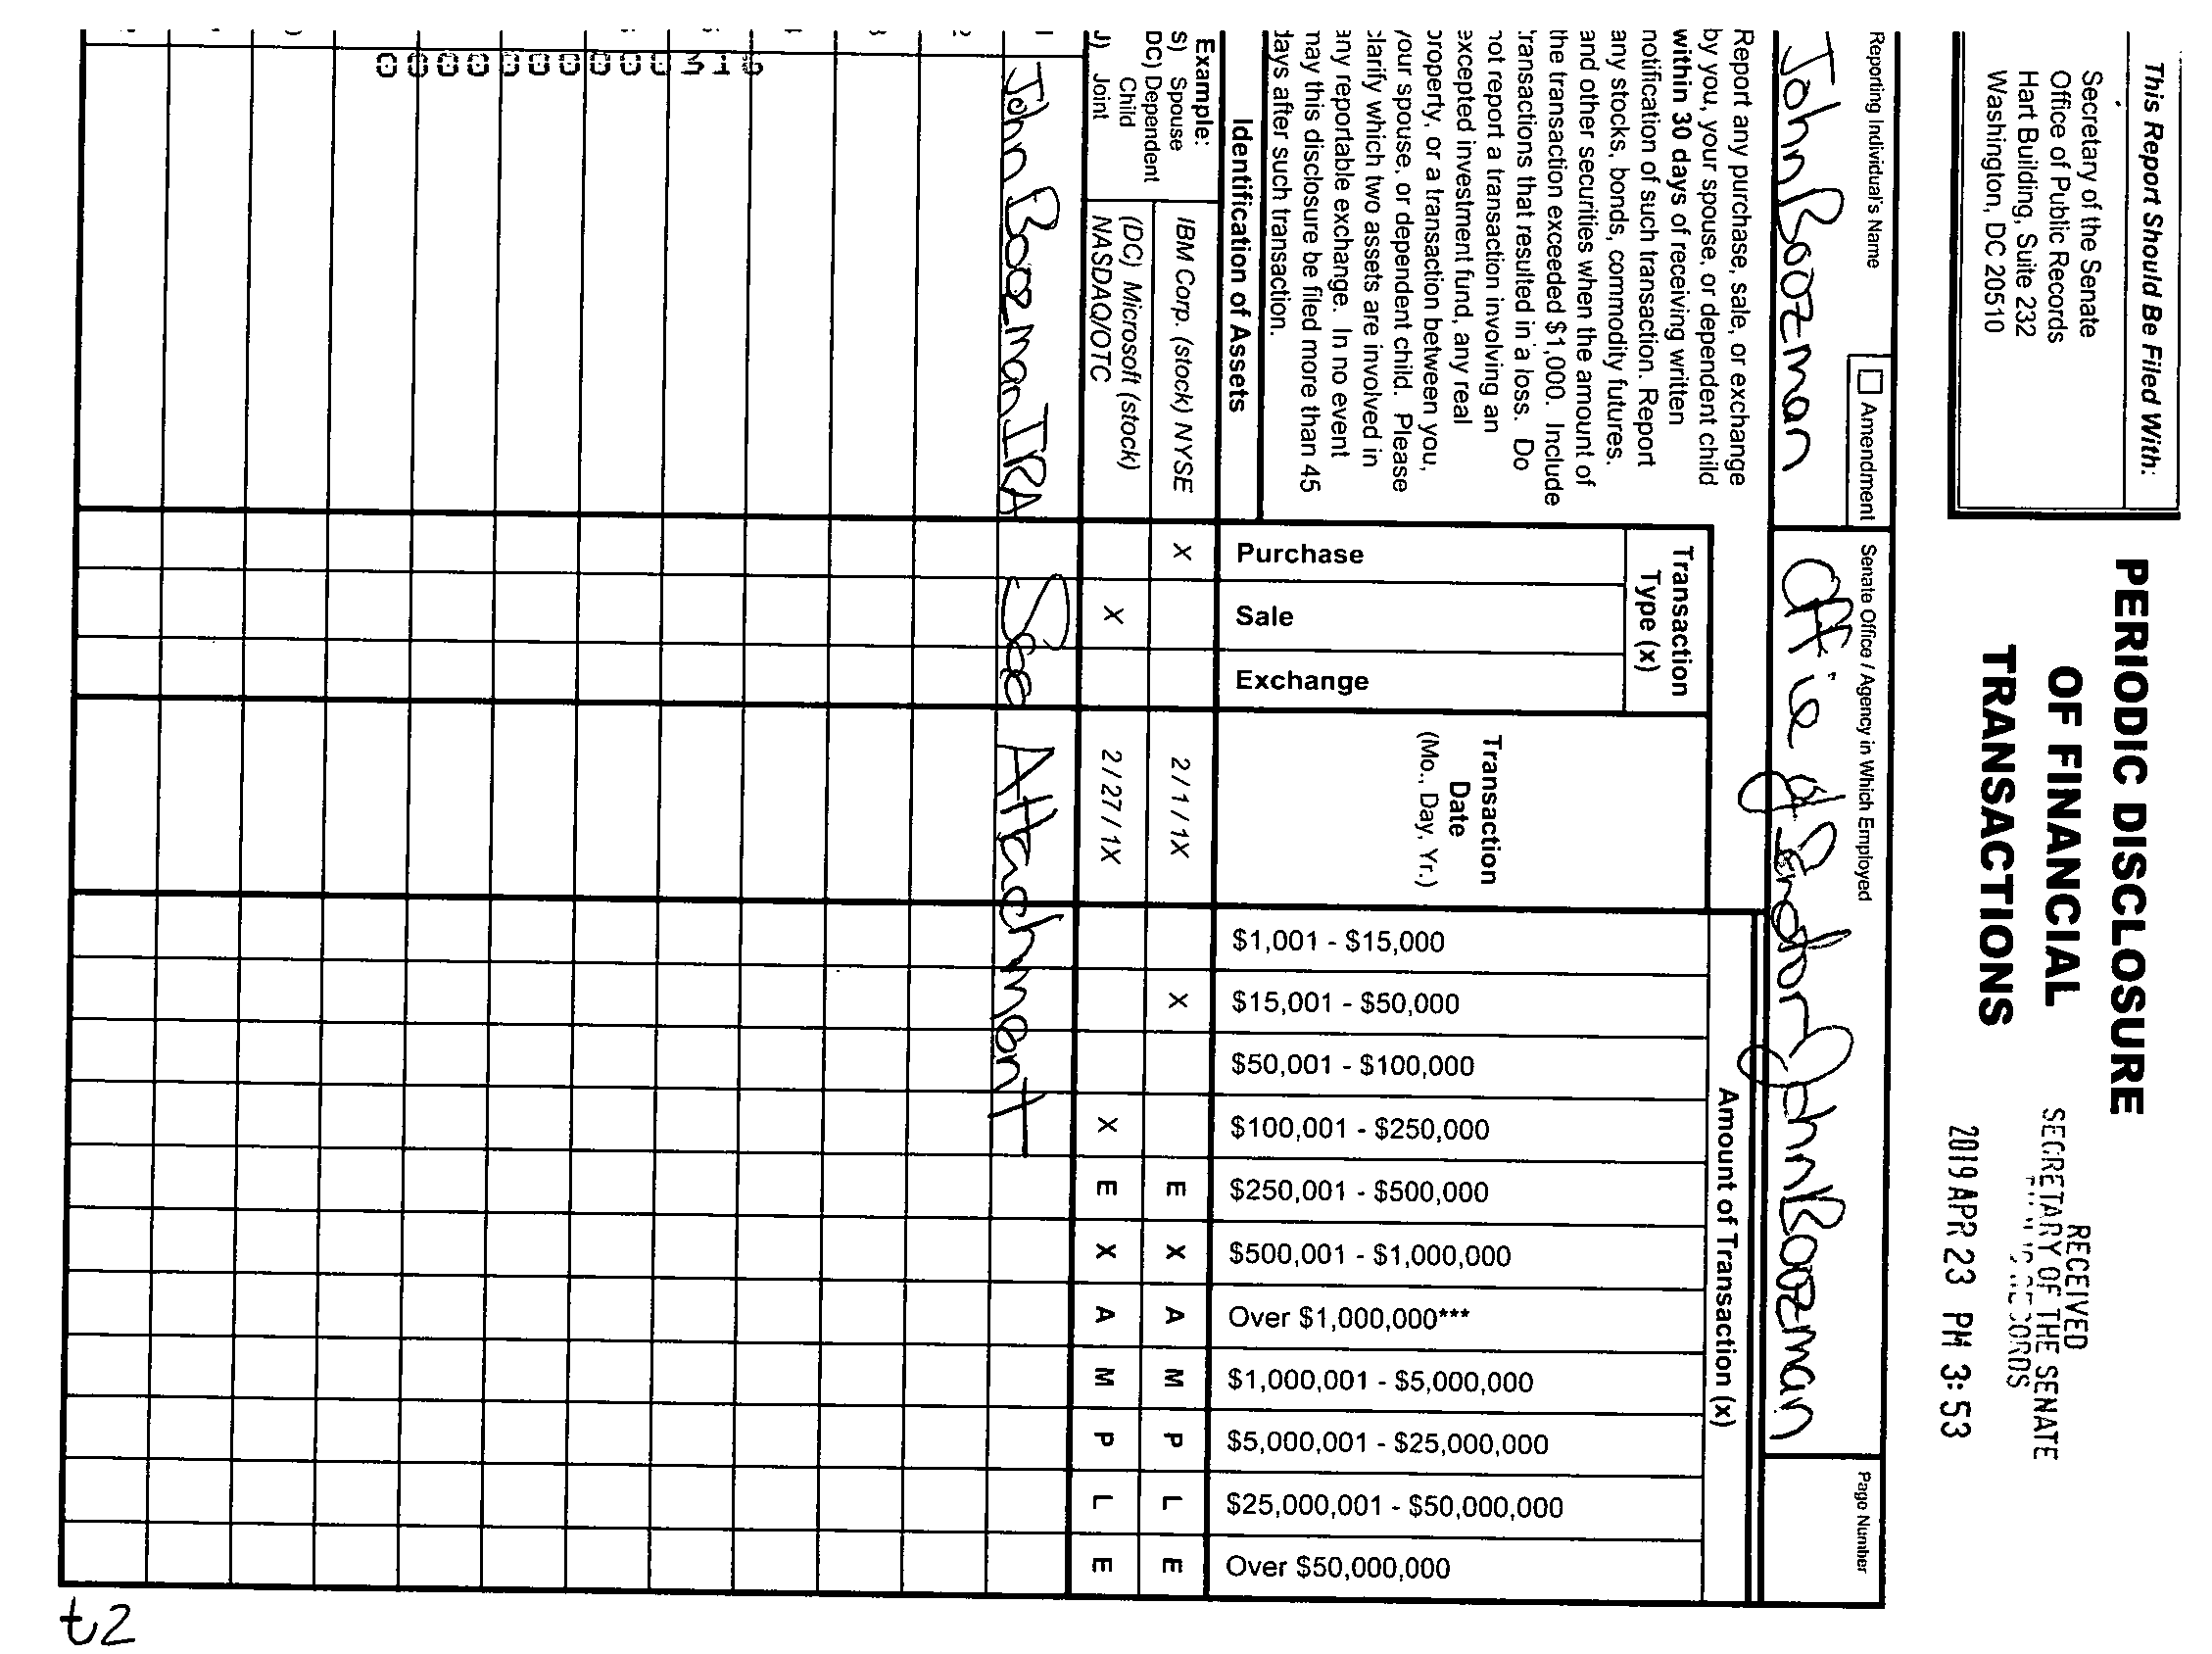 This Report Should Be Filed With:
Secretary of the Senate
Office of Public Records
Hart Building, Suite 232
Washington, DC 20510
PERIODIC DISCLOSURE
OF FINANCIAL
TRANSACTIONS
RECEIVED
SECRETARY OF THE SENATE
2019 APR 23 PM 3:53
Reporting Individual's Name
John Boozman
Amendment
Senate Office / Agency in Which Employed
Office of Senator John Boozman
Page Number
Report any purchase, sale, or exchange
by you, your spouse, or dependent child
within 30 days of receiving written
notification of such transaction. Report
any stocks, bonds, commodity futures.
and other securities when the amount of
the transaction exceeded $1,000. Include
transactions that resulted in a loss. Do
not report a transaction involving an
excepted investment fund, any real
property, or a transaction between you,
your spouse, or dependent child. Please
clarify which two assets are involved in
any reportable exchange. In no event
may this disclosure be filed more than 45
days after such transaction.
Identification of Assets
Transaction
Type (x)
Purchase
Sale
Exchange
Transaction
Date
(Mo., Day, Yr.)
Amount of Transaction (x)
$1,001 - $15,000
$15,001 - $50,000
$50,001 - $100,000
$100,001 - $250,000
$250,001 - $500,000
$500,001 - $1,000,000
Over $1,000,000***
$1,000,001 - $5,000,000
$5,000,001 - $25,000,000
$25,000,001 - $50,000,000
Over $50,000,000
Example:
S) Spouse
DC) Dependent
Child
J) Joint
IBM Corp. (stock) NYSE X 2 / 1 / 1X X E X A M P L E
(DC) Microsoft (stock)
NASDAQ/OTC X 2 / 27 / 1X X E X A M P L E
John Boozman IRA See Attachment